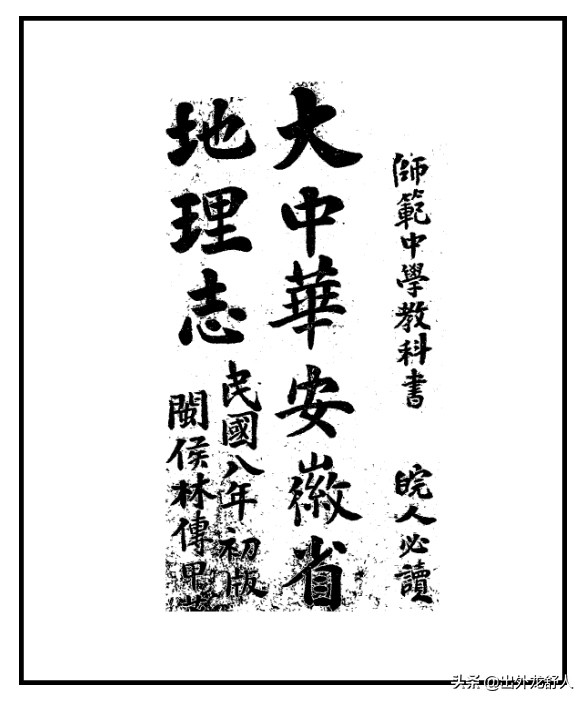 師範中學教科書　皖人必讀
大中華安徽省
地理志
民國八年初版
閩侯林傳甲
头条 @出外龙舒人